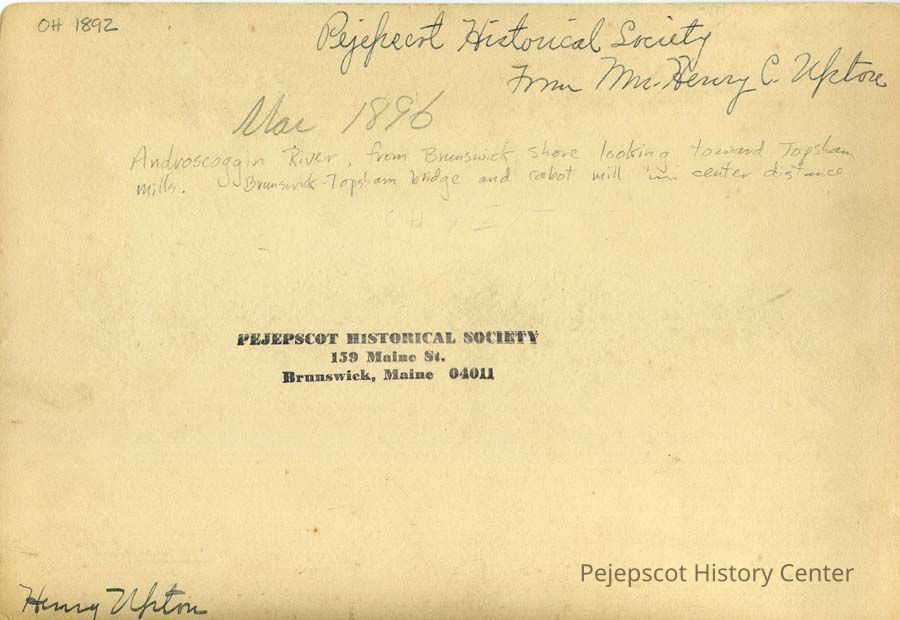 OH 1892
Pejepscot Historical Society
From Mr. Henry C. Upton
Mar 1896
Androscoggin River, from Brunswick shore looking toward Topsham
mills. Brunswick-Topsham bridge and cabot mill in center distance
PEJEPSCOT HISTORICAL SOCIETY
159 Maine St.
Brunswick, Maine 04011
Pejepscot History Center
Henry Upton